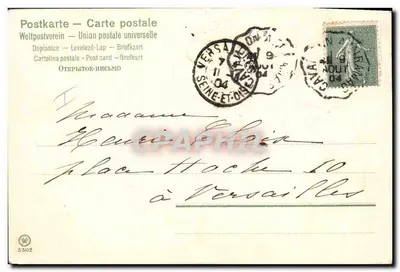 Postkarte – Carte postale
Weltpostverein – Union postale universelle
Dopisnice – Levelező-Lap – Brefkort
Cartolina postale – Post card – Briefkart
ОТКРЫТОЕ-ПИСЬМО
VERSAILLES
7
11
04
SEINE-ET-OISE
9
AOUT
04
Madame
Henri
place Hoche 10
à Versailles
CARTPHILA
5502